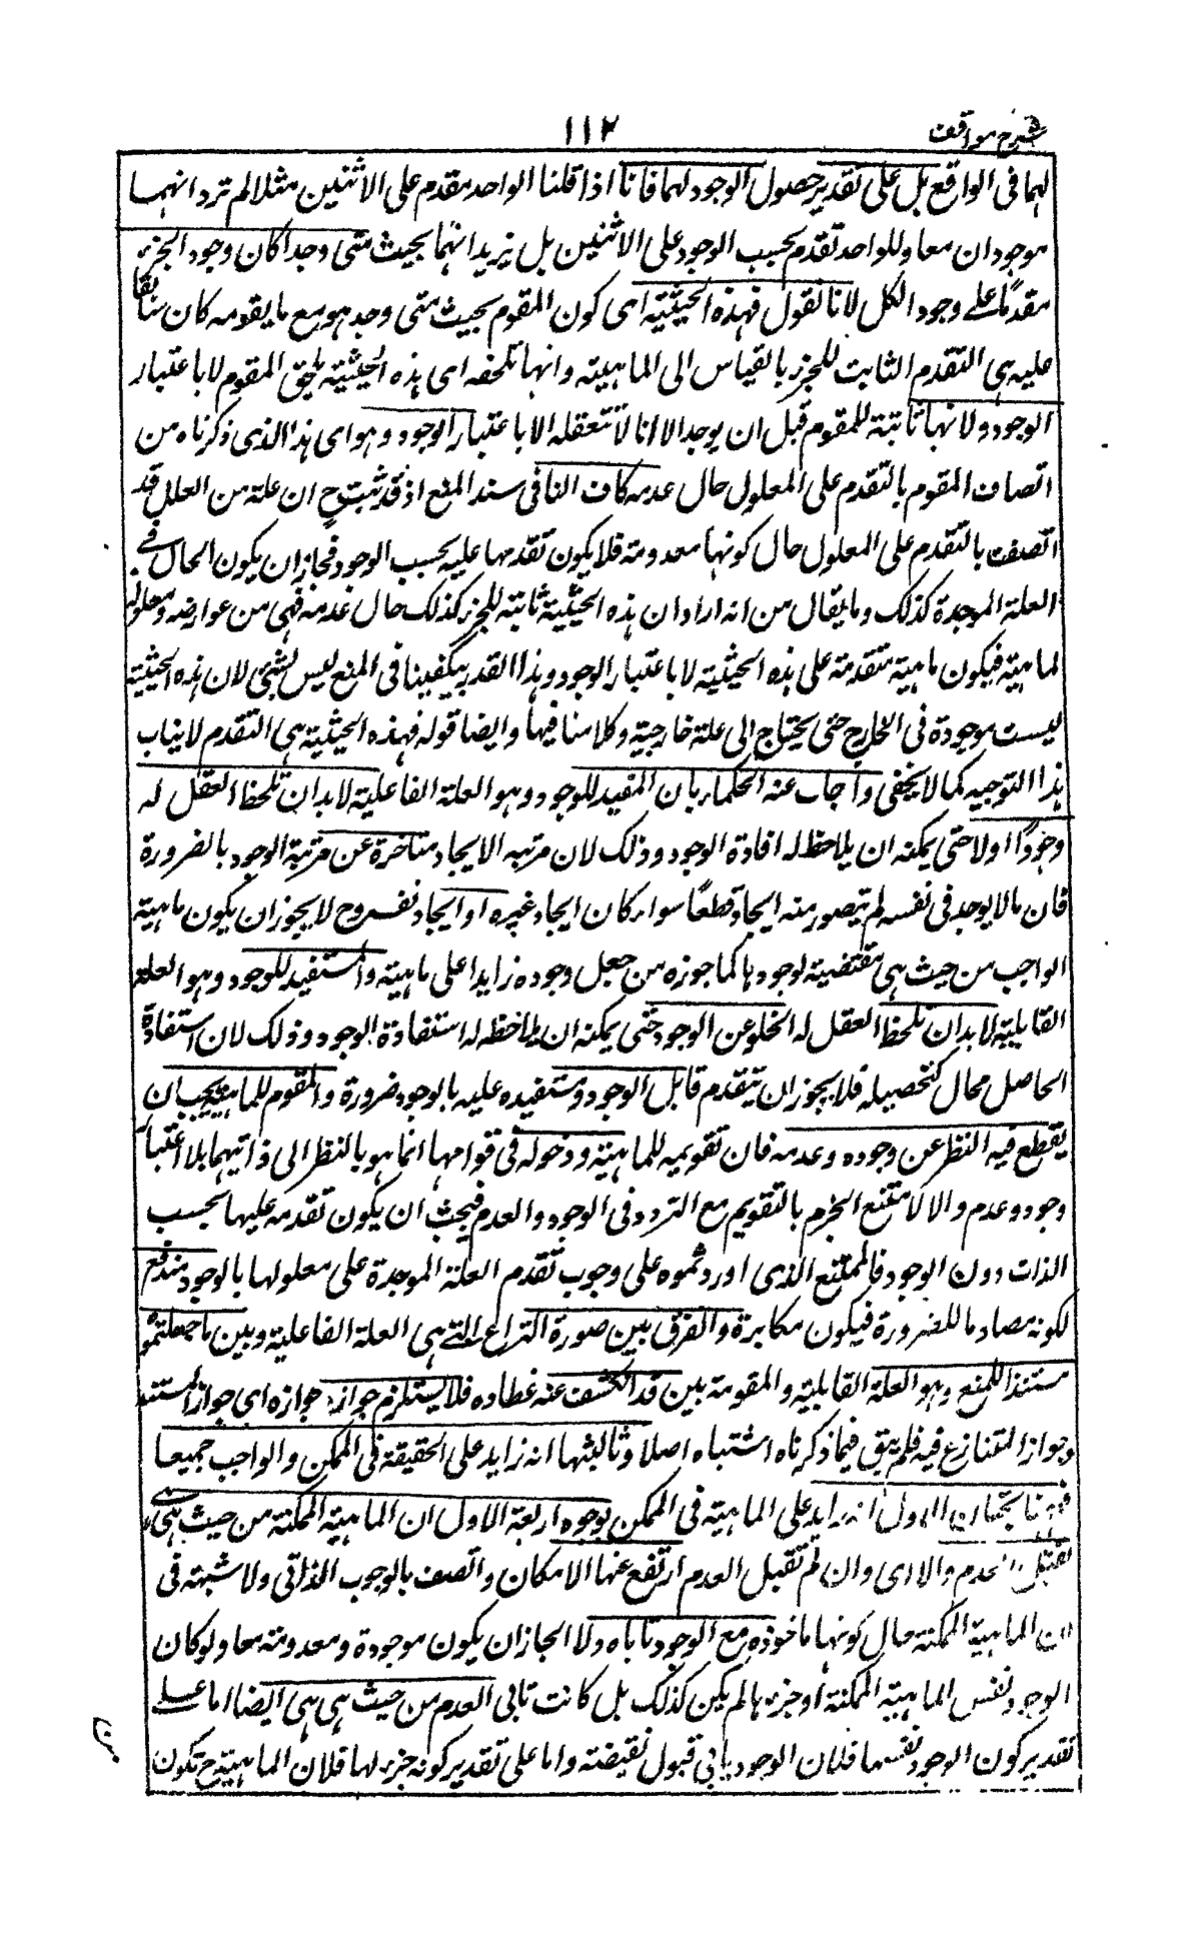 شرح مواقف
١١٢
لهما فى الواقع بل على تقدير حصول الوجود لهما فانا اذا قلنا الواحد مقدم على الاثنين مثلا لم نرد انهما
موجودان معا وللواحد تقدم بحسب الوجود على الاثنين بل نريد انهما بحيث متى وجدا كان وجود الجزء
مقدما على وجود الكل لانا نقول فهذه الحيثية اى كون المقوم بحيث متى وجد هو مع ما يقومه كان سابقا
عليه هى التقدم الثابت للجزء بالقياس الى الماهية وانها تلحقه اى هذه الحيثية يلحق المقوم لا باعتبار
الوجود ولانها ثابتة للمقوم قبل ان يوجد الا انا لا نتعقله الا باعتبار الوجود وهو اى هذا الذى ذكرناه من
اتصاف المقوم بالتقدم على المعلول حال عدمه كاف لنا فى سند المنع اذ قد ثبت ح ان علة من العلل قد
اتصفت بالتقدم على المعلول حال كونها معدومة فلا يكون تقدمها عليه بحسب الوجود فجاز ان يكون الحال فى
العلة الموجدة كذلك وما يقال من انه اراد ان هذه الحيثية ثابتة للجزء كذلك حال عدمه فهى من عوارضه ومعلولة
لماهية فيكون ماهية متقدمة على هذه الحيثية لا باعتبار الوجود وهذا القدر يكفينا فى المنع ليس بشئ لان هذه الحيثية
ليست موجودة فى الخارج حتى يحتاج الى علة خارجية وكلامنا فيها وايضا قوله فهذه الحيثية هى التقدم لا يناسب
هذا التوجيه كما لا يخفى واجاب عنه الحكماء بان المفيد للوجود وهو العلة الفاعلية لا بد ان يلحظ العقل له
وجودًا اولا حتى يمكنه ان يلاحظ له افادة الوجود وذلك لان مرتبه الايجاد متاخرة عن مرتبة الوجود بالضرورة
فان ما لا يوجد فى نفسه لم يتصور منه ايجاد قطعًا سواء كان ايجاد غيره او ايجاد نفسه وح لا يجوز ان يكون ماهية
الواجب من حيث هى مقتضية لوجودها كما جوزه من جعل وجوده زايدا على ماهيته والمستفيد للوجود وهو العلة
القابلية لا بد ان يلحظ العقل له الخلو عن الوجود حتى يمكنه ان يلاحظ له استفادة الوجود وذلك لان استفادة
الحاصل محال كتحصيله فلا يجوز ان يتقدم قابل الوجود ومستفيده عليه بالوجود ضرورة والمقوم للماهية يجب ان
يقطع فيه النظر عن وجوده وعدمه فان تقويمه للماهية ودخوله فى قوامها انما هو بالنظر الى ذاتيهما بلا اعتبار
وجود وعدم والا لامتنع الجزم بالتقويم مع التردد فى الوجود والعدم فيجب ان يكون تقدمه عليها بحسب
الذات دون الوجود فالمنع الذى اوردتموه على وجوب تقدم العلة الموجدة على معلولها بالوجود مندفع
لكونه مصادما للضرورة فيكون مكابرة والفرق بين صورة النزاع التى هى العلة الفاعلية وبين ما جعلتموه
مستندا للمنع وهو العلة القابلية والمقومة بين قد انكشف عنه غطاءه فلا يستلزم جوازه جوازه اى جواز المستند
وجواز التنازع فيه فلم يبق فيما ذكرناه اشتباه اصلا وثالثها انه زايد على الحقيقة فى الممكن والواجب جميعا
فههنا بحثان الاول انه زايد على الماهية فى الممكن لوجوه اربعة الاول ان الماهية الممكنة من حيث هى هى
تقبل العدم والا اى وان لم تقبل العدم ارتفع عنها الامكان واتصف بالوجوب الذاتى ولا شبهة فى
ان الماهية الممكنة حال كونها ماخوذه مع الوجود تاباه ولا الجاز ان يكون موجودة ومعدومة معا ولو كان
الوجود نفس الماهية الممكنة او جزءها لم يكن كذلك بل كانت تابى العدم من حيث هى هى ايضا اما على
تقدير كون الوجود نفسها فلان الوجود يابى قبول نقيضه واما على تقدير كونه جزء لها فلان الماهية ح تكون